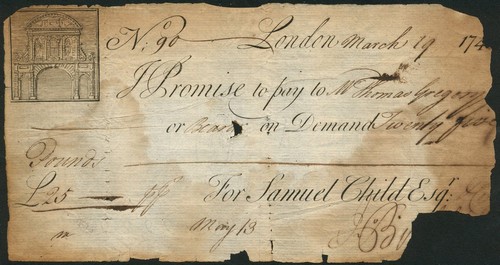 No: 90 London March 19 174
I Promise to pay to Mr Thomas Gregory
or Bearer on Demand Twenty five
Pounds
£25 For Samuel Child Esqr.
May 13